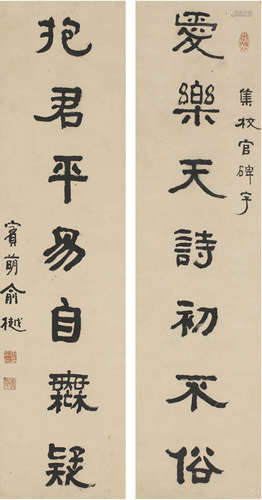 愛樂天詩初不俗
集校官碑字
抱君平易自無疑
賓萌俞樾